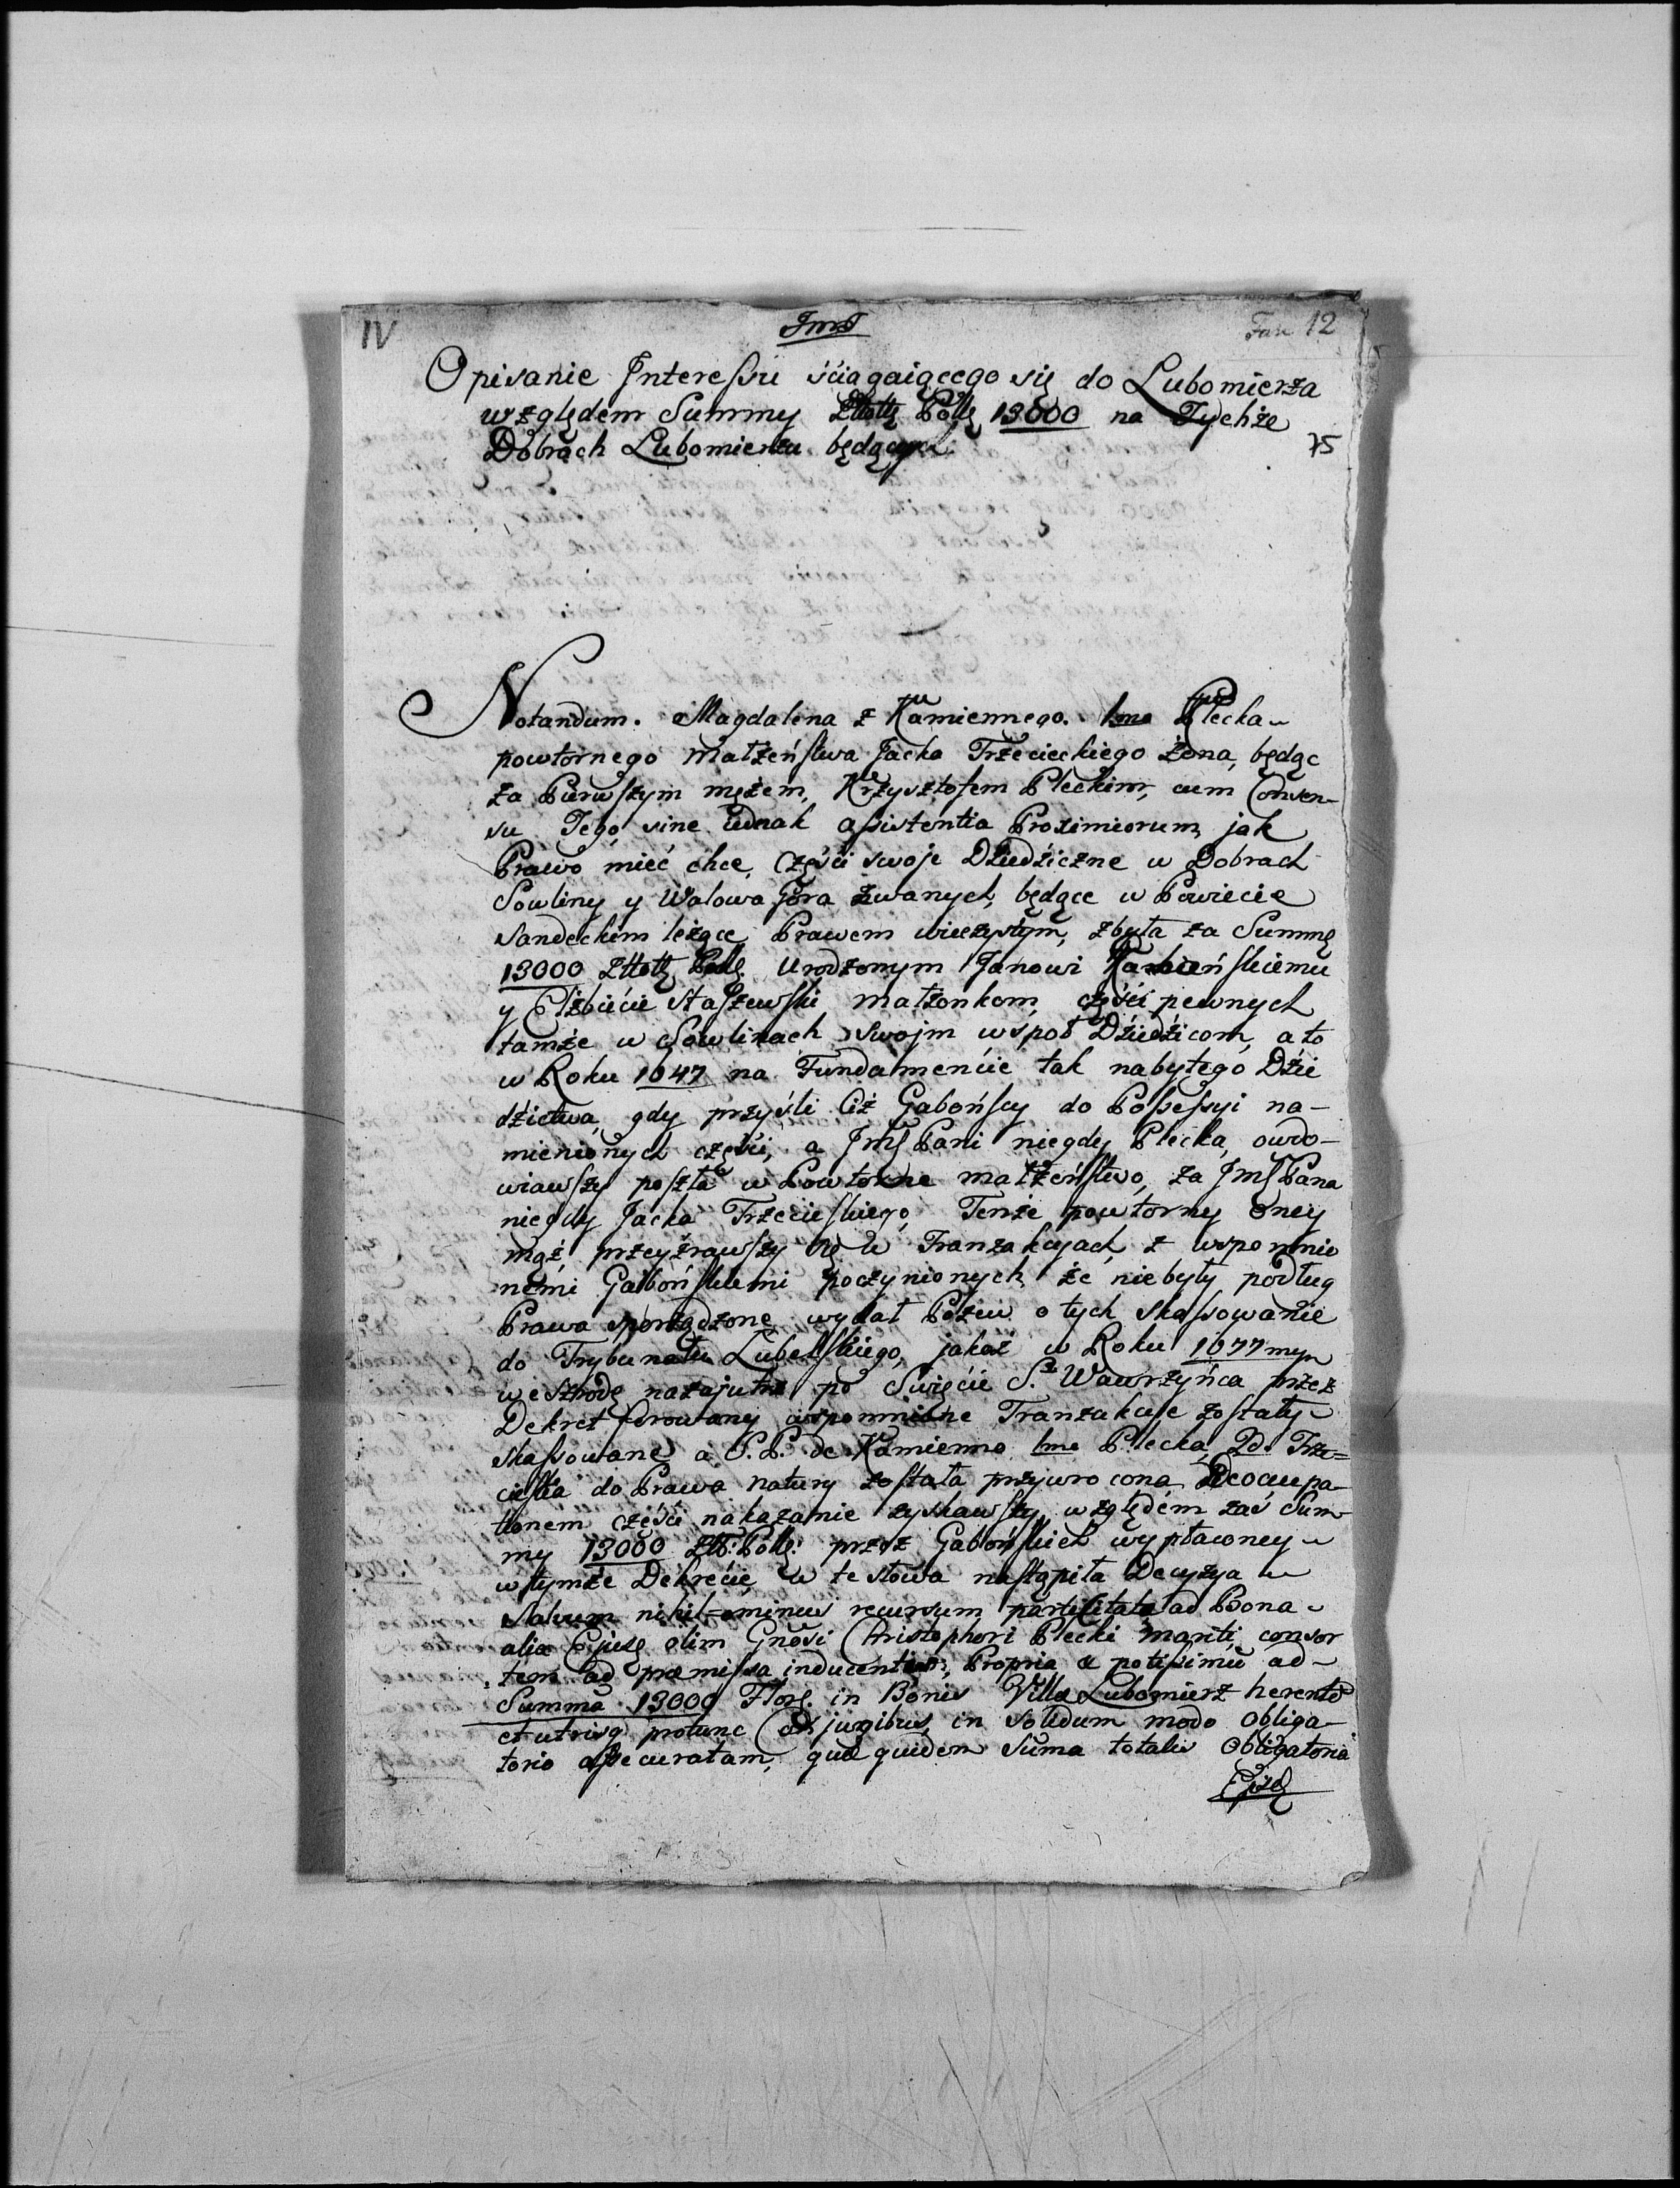 IV
JmJ
Fasc 12
Opisanie Interessu ściągaiącego się do Lubomierza
względem Summy Złotł Pollę 13000 na Tychże
Dobrach Lubomierzu będących
75
Notandum. Magdalena z Kamiennego. 1mo Plecka
powtornego małżeństwa Jacka Trzecieckiego żona, będąc
za Pierwszym mężem, Krzysztofem Pleckim, cum Consen-
su Tego sine iednak assistentia Proximiorum jak
Prawo mieć chce, Części swoje Dziedziczne w Dobrach
Sowliny y Walowa Góra zwanych, będące w Powiecie
Sandeckim leżące Prawem wieczystym, zbyła za Summę
13000 Złotł Pollę Urodzonym Janowi Gaboń skiemu
y Elżbiecie Staszewski małżonkom, części pewnych
tamże w Sowlinach swojm wspoł Dziedzicom, a to
w Roku 1647 na Fundamencie tak nabytego Dzie
dzictwa, gdy przyśli Ciż Gabońscy do Possessyi na-
mienionych części, a Jmść Pani niegdy Plecka, owdo-
wiawszy poszła w Powtorne małżeństwo, za Jmść Pana
niegdy Jacka Trzecieskiego, Tenże powtorny Oney
mąż, przeyźrawszy się w Tranzakcyach z wspomnio
nemi Gabońskiemi poczynionych że niebyły podług
Prawa sporządzone wydał Pozew o tych skassowanie
do Trybunału Lubelskiego, jakoż w Roku 1677mym
we Szrodę nazajutrz po Święcie S. Wawrzyńca przez
Dekret ferowany wspomnione Tranzakcye zostały
skassowane a P. P. de Kamienna 1mo Plecka 2do Trze=
cieska do Prawa natury została przywrocona Deoccupa-
tionem części nakazanie zyskawszy, względem zaś Sum-
my 13000 Złł: Pollę: przez Gabońskich wypłaconey
w tymże Dekrecie w te słowa nastąpiła Decyzya
Salvum nihil=ominus recursum partiCitatæ ad Bona
alia Ejusq olim Gnosi Christophori Plecki mariti consor
tem ad præmissa inducentem, Propria & potissimũ ad
Summã 13000 Floreń. in Bonis Villæ Lubomierz herentẽ
et utrisq protunc Conjugibus, in Solidum modo Obliga-
torio assecuratam, quæ quidem Suma totalis Obligatoria
Ejusq